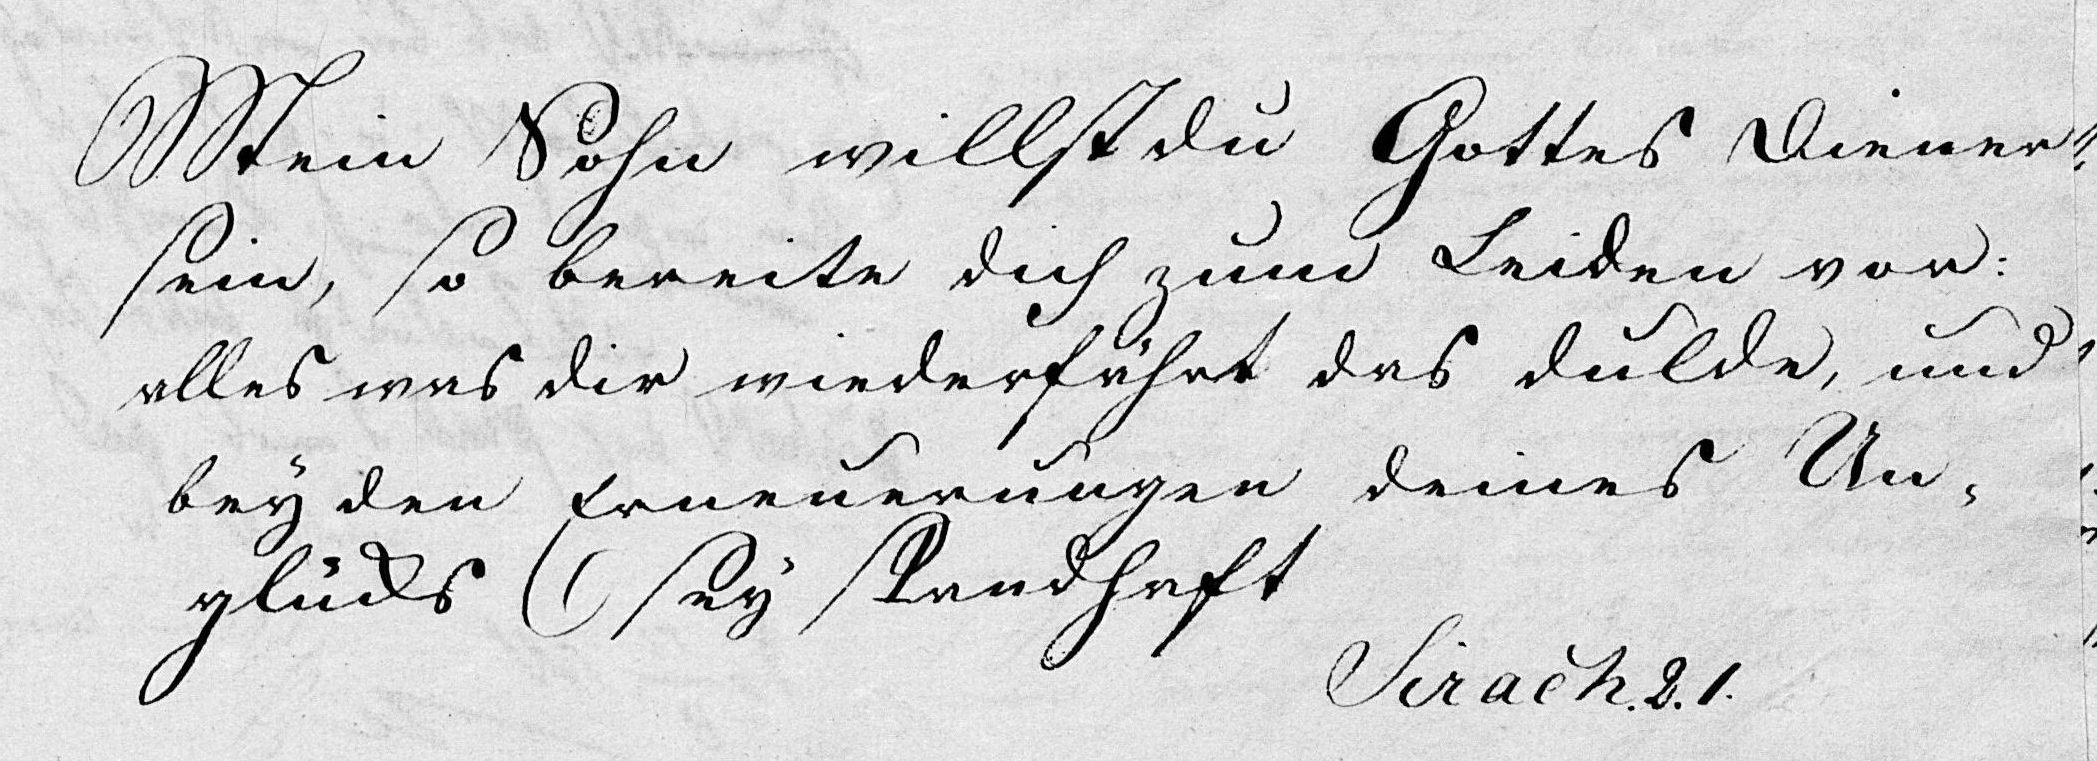 Mein Sohn willst du Gottes Diener
sein, so bereite dich zum Leiden vor:
alles was dir wiederfährt das dulde, und
bey den Erneuerungen deines Un-
glücks sey standhaft
Sirach. 2. 1.